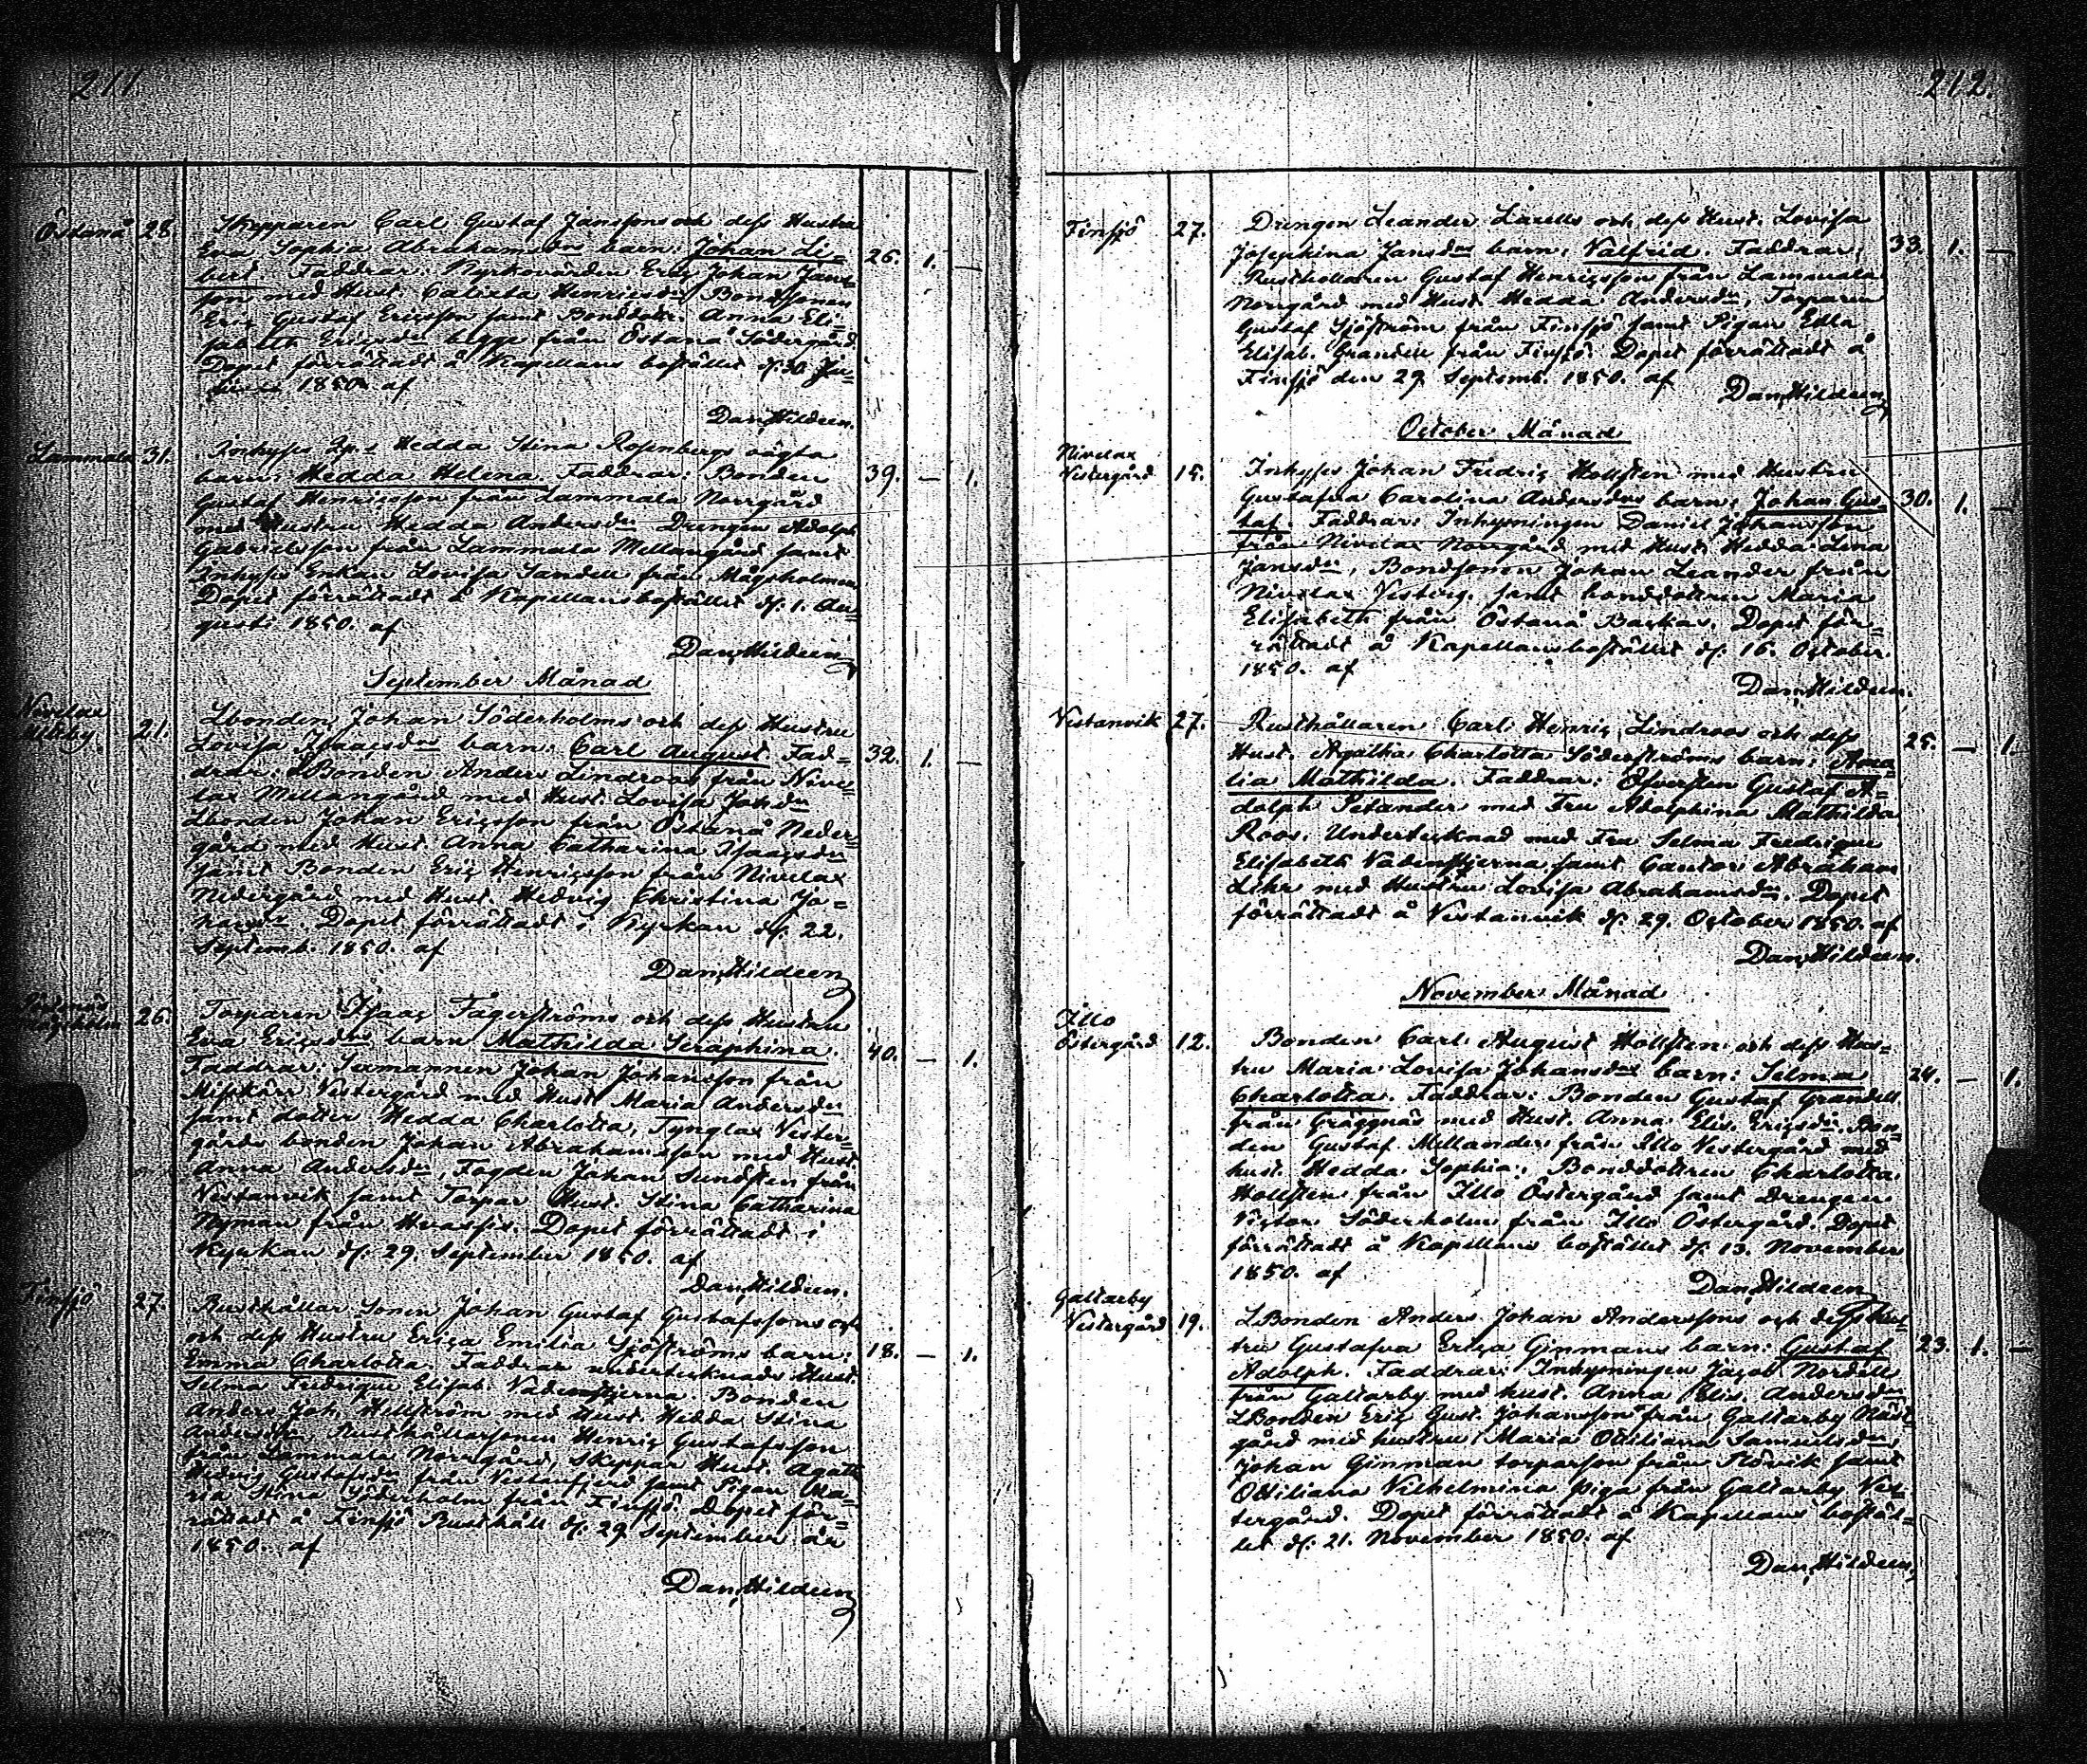 211
Östanå 28. Skepparen Carl Gustaf Janssons och dess Hustru
Eva Sophia Abrahamsdrs barn: Johan Li= 26. 1. —
bert. Faddrar: Kyrkovärden Eric Johan Jans=
son med Hust. Calixta Henricsdr Bondsonen
Eric Gustaf Ericsson samt Bonddottr. Anna Eli=
sabeth Ericsdr begge från Östanå Södergård
Dopet förrättadt å Kapellans bostället d: 30 Ju=
1850 af
Dan. Hildeen.
Lammala 31. Inhyses Hedda Stina Rosenbergs oägta
barn: Hedda Helena. Faddrar: Bonden 39. — 1.
Gustaf Henricsson från Lammala Norrgård
med Hustru Hedda Andersdr Drengen Adolph
Gabrielsson från Lammala Mellangård samt
Inhyses Enkan Lovisa Sandell från Mågsholmen
Dopet förrättadt å Kapellansbostället d: 1. Au=
gusti 1850. af
Dan. Hildeen
September Månad
Nivelax
21. Lbonden Johan Söderholms och dess Hustru
Lovisa Isaacsdrs barn: Carl August Fad= 32. 1. —
drar: LBonden Anders Lindroos från Nive=
lax Mellangård med Hust. Lovisa Johsdr
Lbonden Johan Ericsson från Östanå Neder=
gård med Hust. Anna Catharina Isaacsdr
samt Bonden Eric Henricsson från Nivelax
Nedergård med Hust. Hedvig Christina Jo=
hansdr. Dopet förrättadt i Kyrkan d: 22.
Septemb. 1850. af
Dan. Hildeen
26. Torparen Isaac Fagerströms och dess Hustru
Eva Ericsdrs barn Mathilda Seraphina. 40. — 1.
Faddrar: Sexmannen Johan Johansson från
Misskärr Vestergård med Hust. Maria Andersdr
samt dotter Hedda Charlotta, Tynglax Vester=
gårds bonden Johan Abrahamsson med Hust.
Anna Andersdr, Fogden Johan Sundsten från
Vestanvik samt Torpar Hust. Stina Catharina
Nyman från Dopet förrättadt i
Kyrkan d: 29. September 1850. af
Dan. Hildeen.
Finsjö 27. Rusthållar Sonen Johan Gustaf Gustafssons och
och dess Hustru Erica Emilia Sjöströms barn: 18. — 1.
Emma Charlotta. Faddrar undertecknads Hust
Selma Fredrique Elisab. Nadenstjerna. Bonden
Anders Joh. Hellström med Hust. Hedda Stina
Andersdr, Rusthållarsonen Henric Gustafsson
från Lammala Norrgård, Skeppar Hust. Agatha
Hedvig Gustafsdr från Vestanfjerd samt Pigan Ma=
ria Stina Söderholm från Finsjö Dopet för=
rättadt å Finsjö Rusthåll d: 29 September år
1850. af
Dan. Hildeen
212.
Finsjö 27. Drengen Leander Laxells och dess Hust. Lovisa
Josephina Jansdrs barn: Valfrid. Faddrar: 33. 1. —
Rusthollaren Gustaf Henricsson från Lammala
Norrgård med Hust. Hedda Andersdr, Torparen
Gustaf Sjöström från Finsjö samt Pigan Edla
Elisab. Grandell från Finsjö. Dopet förrättadt å
Finsjö den 29 Septemb. 1850. af
Dan. Hildeen
October Månad
Nivelax
Vestergård 15. Inhyses Johan Fredric Hollsten med Hustru
Gustafva Carolina Andersdrs barn: Johan Gus= 30. 1. —
taf. Faddrar: Inhysningen Daniel Johansson
från Nivelax Norrgård med Hust. Hedda Lena
Jansdr, Bondsonen Johan Leander från
Nivelax Vesterg. samt bonddottren Maria
Elisabeth från Östanå Backas. Dopet för=
rättadt å Kapellansbostället d: 16. October
1850. af
Dan. Hildeen.
Vestanvik 27. Rusthållaren Carl Henric Lindroos och dess
Hust. Agatha Charlotta Söderströms barn: Ama 25. — 1.
lia Mathilda. Faddrar: Öfversten Gustaf A=
dolph Petander med Fru Adolphina Mathilda
Roos. Undertecknad med Fru Selma Fredrique
Elisabeth Nadenstjerna samt Cantor Abraham
Lihr med Hustru Lovisa Abrahamsdr. Dopet
förrättadt å Vestanvik d: 29. October 1850. af
Dan. Hildeen.
November Månad
Illo
Östergård 12. Bonden Carl August Hollsten och dess Hus=
tru Maria Lovisa Johansdrs barn: Selma 24. — 1.
Charlotta. Faddrar: Bonden Gustaf Grandell
från Gräggnäs med Hust. Anna Elis. Ericsdr. Bon=
den Gustaf Mellander från Illo Vestergård med
hust. Hedda Sophia, Bonddottren Charlotta
Hollsten från Illo Östergård samt drengen
Victor Söderholm från Illo Östergård. Dopet
förrättadt å Kapellans bostället d: 13. November
1850. af
Dan. Hildeen
Galtarby
Vestergård 19. LBonden Anders Johan Anderssons och dess Hus=
tru Gustafva Erica Ginmans barn: Gustaf 23. 1. —
Adolph. Faddrar: Inhysningen Jacob Nordell
från Galtarby med hust. Anna Elis. Andersdr
LBonden Eric Gust. Johansson från Galtarby
gård med hustru Maria Ottiliana Samuelsdr,
Johan Ginman torparson från Flövik samt
Ottiliana Vilhelmina piga från Galtarby Ves=
tergård. Dopet förrättadt å Kapellans bostäl=
let d: 21. November 1850. af
Dan. Hildeen